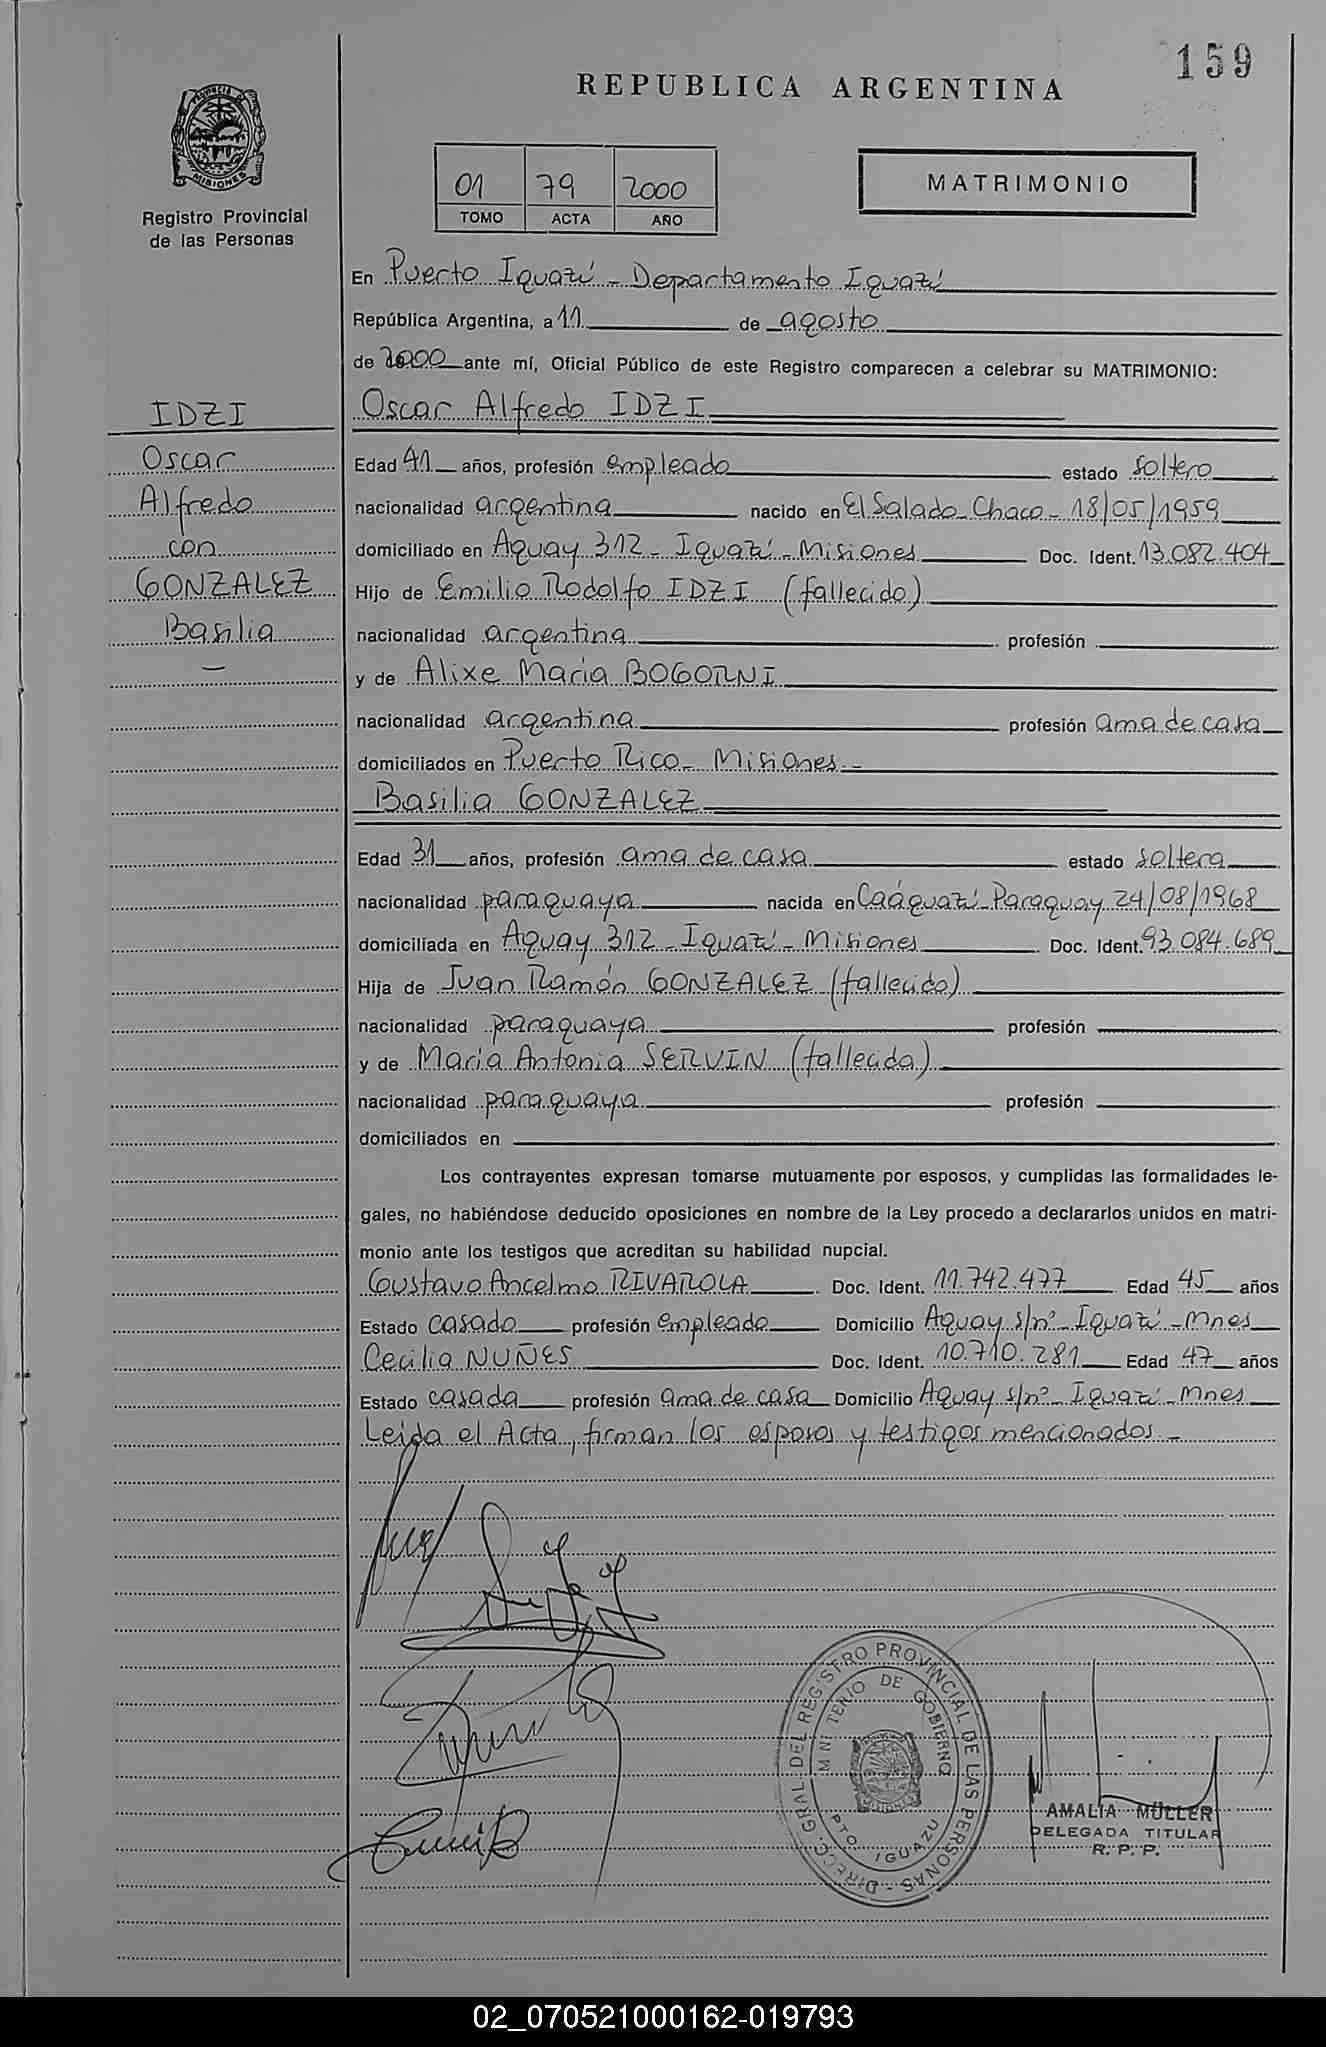 159
REPUBLICA ARGENTINA
PROVINCIA DE
MISIONES
Registro Provincial
de las Personas
01 79 2000
TOMO ACTA AÑO
MATRIMONIO
En Puerto Iguazú - Departamento Iguazú
República Argentina, a 11 de agosto
de 2000 ante mí, Oficial Público de este Registro comparecen a celebrar su MATRIMONIO:
IDZI
Oscar
Alfredo
con
GONZALEZ
Basilia
Oscar Alfredo IDZI
Edad 41 años, profesión empleado estado soltero
nacionalidad argentina nacido en El Salado - Chaco - 18/05/1959
domiciliado en Aguay 312 - Iguazú - Misiones Doc. Ident. 13.082.404
Hijo de Emilio Rodolfo IDZI (fallecido)
nacionalidad argentina profesión
y de Alixe María BOGORNI
nacionalidad argentina profesión ama de casa
domiciliados en Puerto Rico - Misiones -
Basilia GONZALEZ
Edad 31 años, profesión ama de casa estado soltera
nacionalidad paraguaya nacida en Caáguazú - Paraguay 24/08/1968
domiciliada en Aguay 312 - Iguazú - Misiones Doc. Ident. 93.084.689
Hija de Juan Ramón GONZALEZ (fallecido)
nacionalidad paraguaya profesión
y de María Antonia SERVIN (fallecida)
nacionalidad paraguaya profesión
domiciliados en
Los contrayentes expresan tomarse mutuamente por esposos, y cumplidas las formalidades le-
gales, no habiéndose deducido oposiciones en nombre de la Ley procedo a declararlos unidos en matri-
monio ante los testigos que acreditan su habilidad nupcial.
Gustavo Ancelmo RIVAROLA Doc. Ident. 11.742.477 Edad 45 años
Estado casado profesión empleado Domicilio Aguay s/nº - Iguazú - Mnes
Cecilia NUÑES Doc. Ident. 10.710.281 Edad 47 años
Estado casada profesión ama de casa Domicilio Aguay s/nº - Iguazú - Mnes
Leída el Acta, firman los esposos y testigos mencionados -
DIRECC. GRAL DEL REGISTRO PROVINCIAL DE LAS PERSONAS -
MINISTERIO DE GOBIERNO
PTO. IGUAZU
AMALIA MÜLLER
DELEGADA TITULAR
R. P. P.
02_070521000162-019793